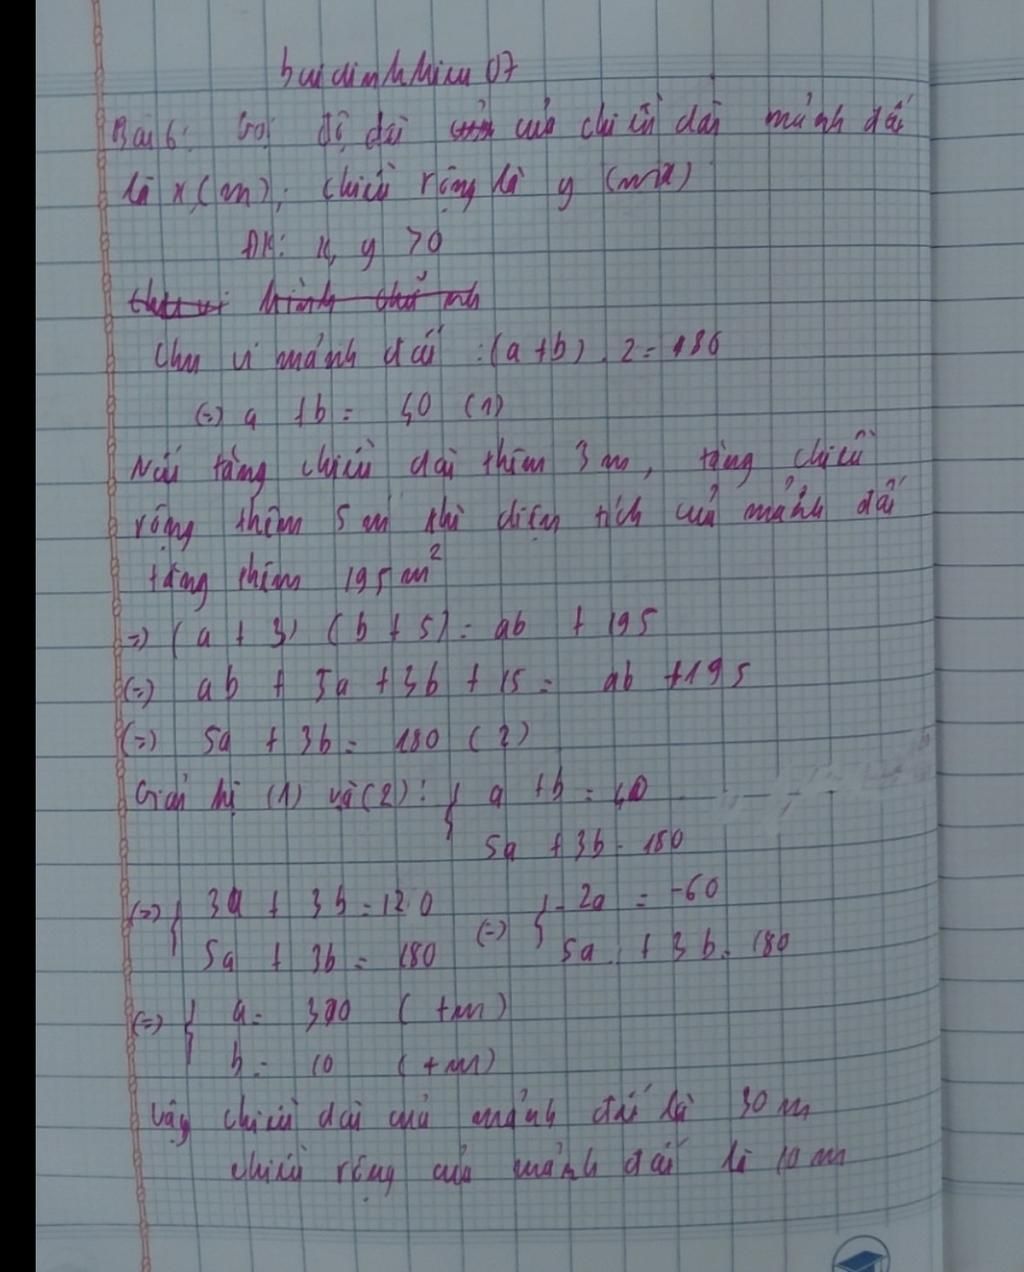 buidinhhieu 07
Bài 6: Gọi độ dài của chiều dài mảnh đất
là x (m); chiều rộng là y (m)
ĐK: x, y >0
Chu vi mảnh đất : (a+b). 2 =
(=) a + b = 40 (1)
Nếu tăng chiều dài thêm 3 m, tăng chiều
rộng thêm 5 m thì diện tích của mảnh đất
tăng thêm 195 m²
=) (a + 3) (b + 5) = ab + 195
(=) ab + 5a + 3b + 15 = ab + 195
(=) 5a + 3b = 180 (2)
Giải hệ (1) và (2): { a + b = 40
5a + 3b = 180
(=) { 3a + 3b = 120 (=) { -2a = -60
5a + 3b = 180 5a + 3b = 180
(=) { a = 30 (tm)
b = 10 (tm)
Vậy chiều dài của mảnh đất là 30 m
chiều rộng của mảnh đất là 10 m